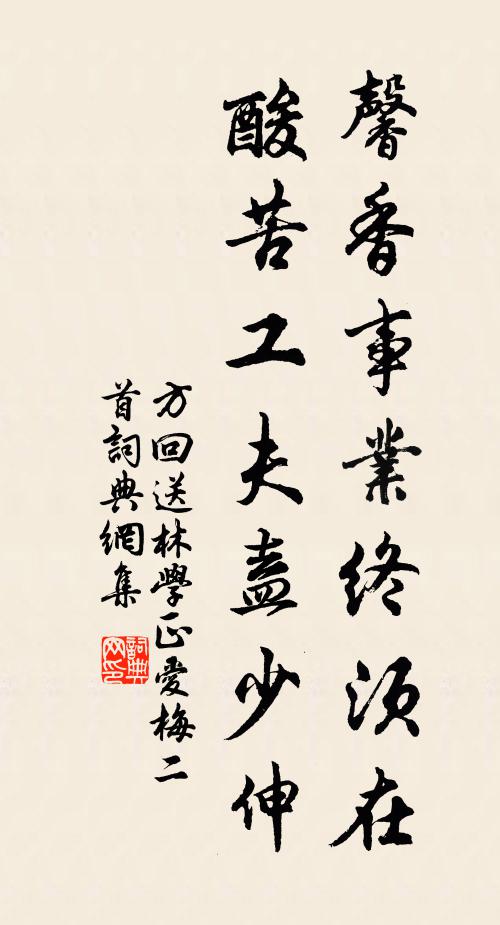 馨香事業終須在
酸苦工夫盍少伸
方回送林學正愛梅二
首詞典網集
詞典网印